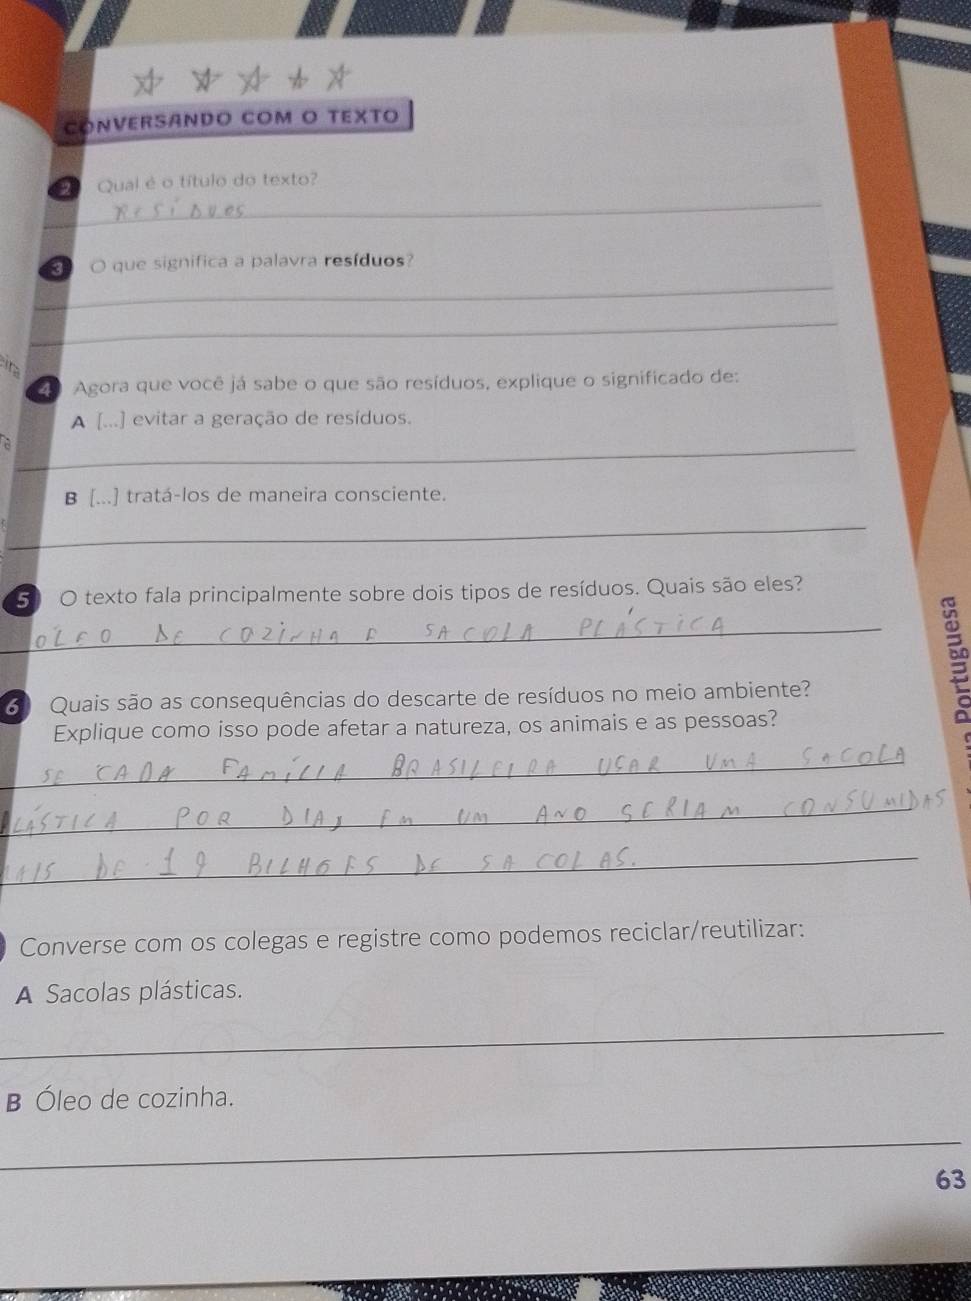 CONVERSANDO COM O TEXTO
2 Qual é o título do texto?
RESIDUES
3 O que significa a palavra resíduos?
eira
4 Agora que você já sabe o que são resíduos, explique o significado de:
A [...] evitar a geração de resíduos.
B [...] tratá-los de maneira consciente.
5 O texto fala principalmente sobre dois tipos de resíduos. Quais são eles?
OLEO DE COZINHA E SACOLA PLÁSTICA
6 Quais são as consequências do descarte de resíduos no meio ambiente?
Explique como isso pode afetar a natureza, os animais e as pessoas?
SE CADA FAMÍLIA BRASILEIRA USAR UMA SACOLA
PLÁSTICA POR DIA, EM UM ANO SERIAM CONSUMIDAS
MAIS DE 19 BILHOES DE SACOLAS.
Converse com os colegas e registre como podemos reciclar/reutilizar:
A Sacolas plásticas.
B Óleo de cozinha.
Portuguesa
63